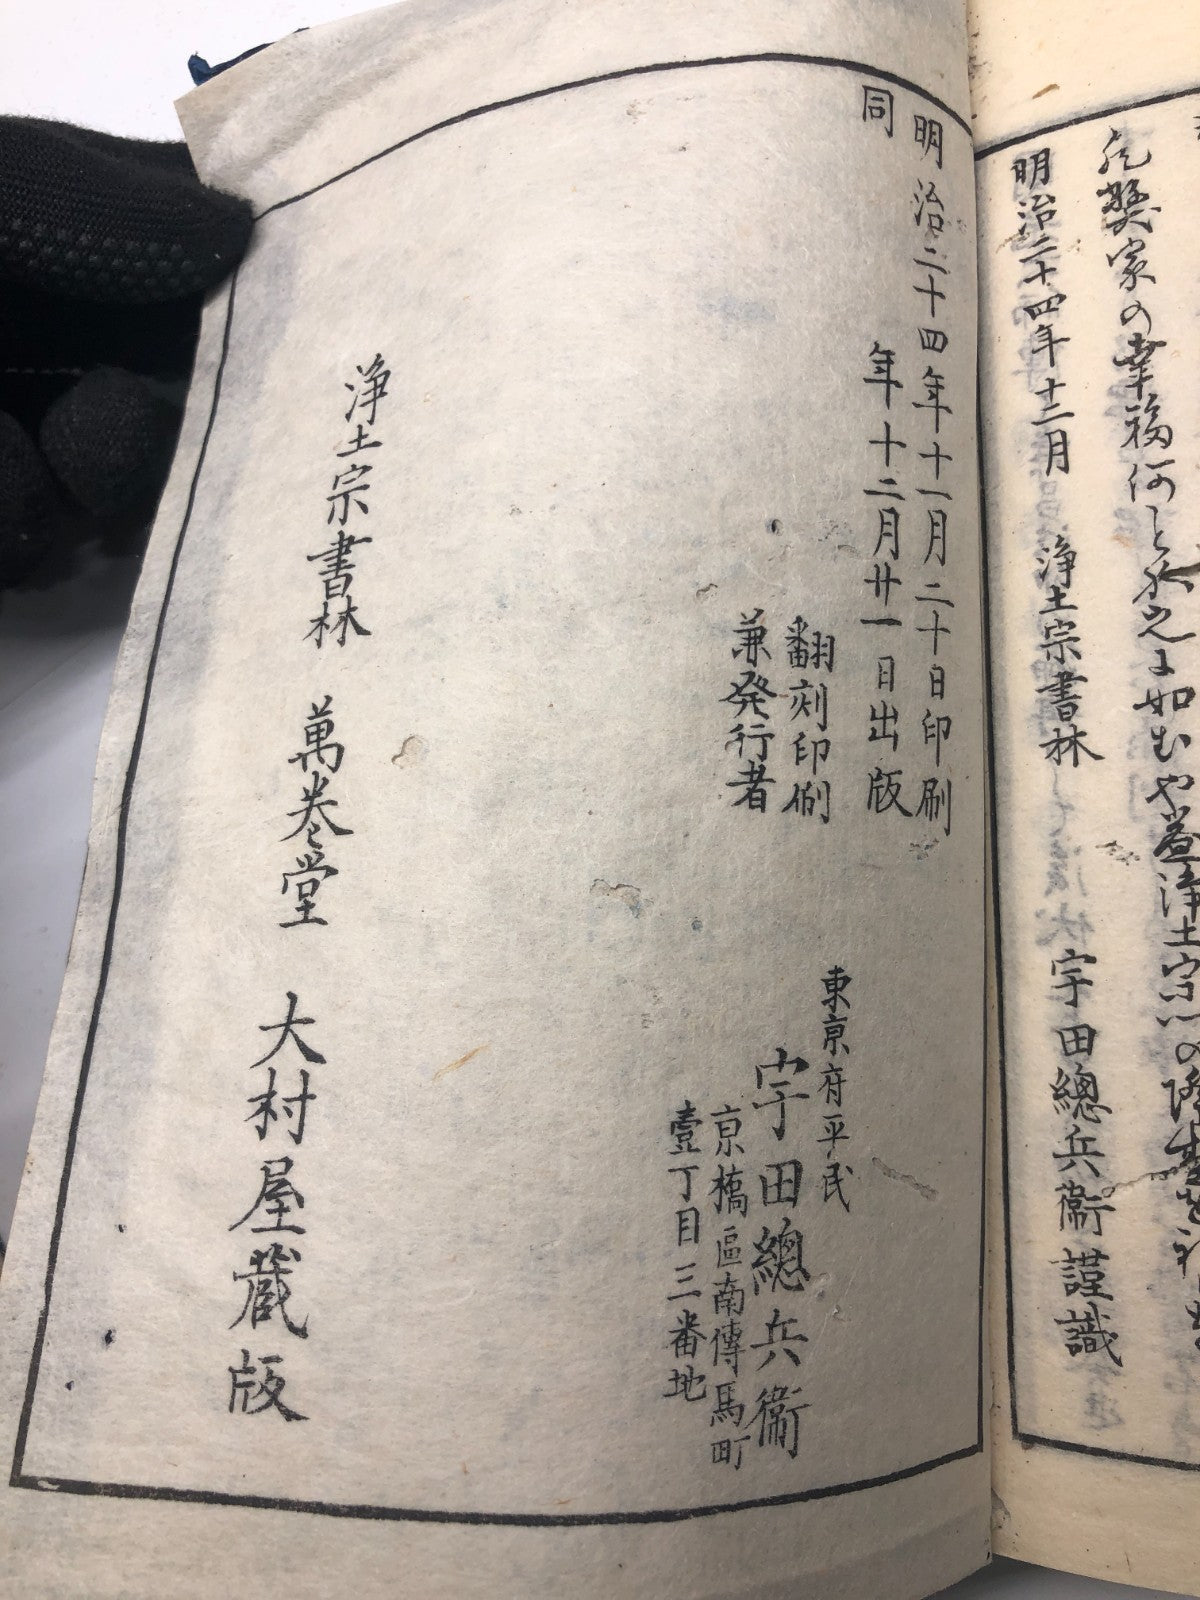 幣家の幸福何と
如むや蓋浄土宗の隆
明治二十四年十二月 浄土宗書林 宇田總兵衞謹識
明治二十四年十一月二十日印刷
同 年十二月廿一日出版
翻刻印刷
兼発行者
東京府平民
宇田總兵衞
京橋區南傳馬町
壹丁目三番地
浄土宗書林 萬巻堂 大村屋蔵版